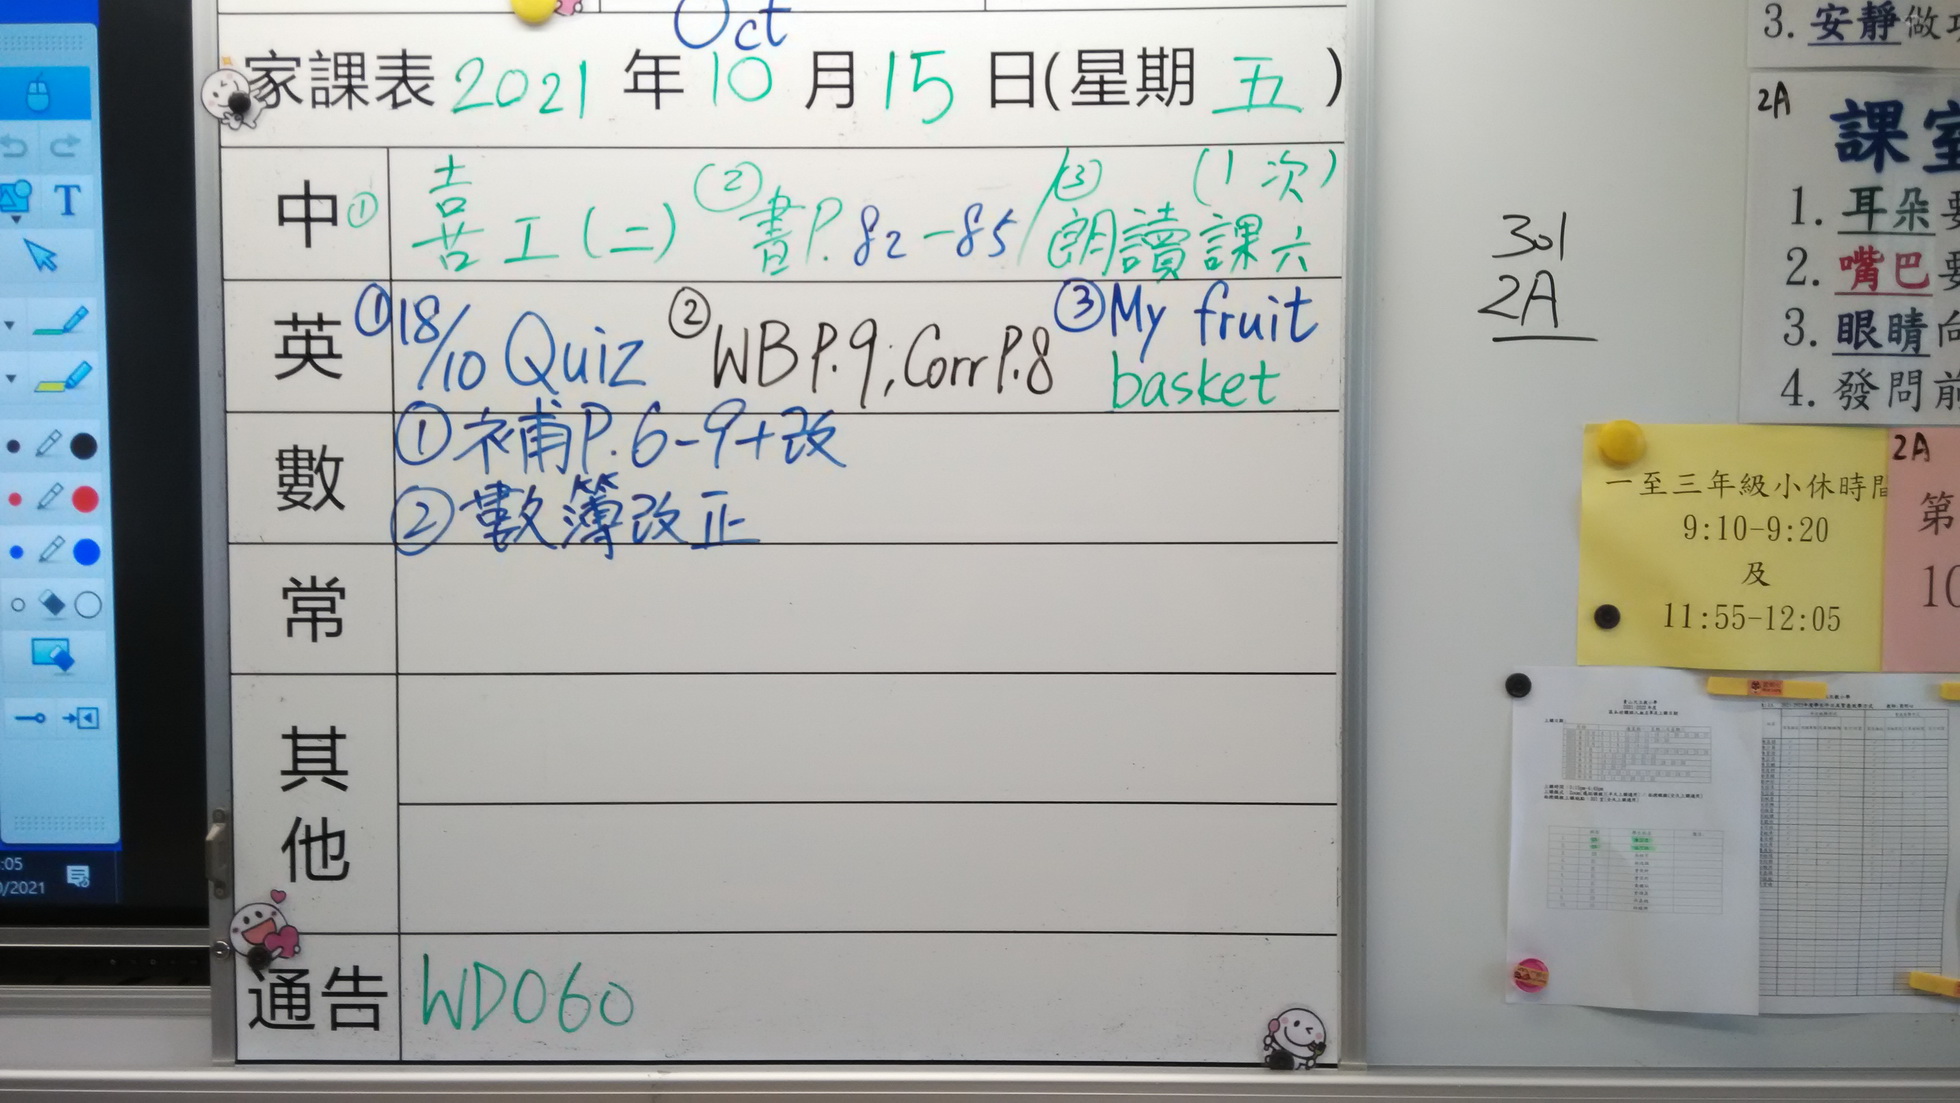 Oct
家課表 2021 年 10 月 15 日(星期 五 )
中 ① 喜 工(二) ② 書P. 82-85 / ③ 朗讀課六 (1次)
英 ① 18/10 Quiz ② WB P.9; Corr P.8 ③ My fruit
basket
數 ① 補P.6-9+改
② 數簿改正
常
其他
通告 WD060
301
2A
3. 安靜做
2A
課室
1. 耳朵要
2. 嘴巴要
3. 眼睛向
4. 發問前
一至三年級小休時間
9:10-9:20
及
11:55-12:05
2A
第
10
:05
/2021
T